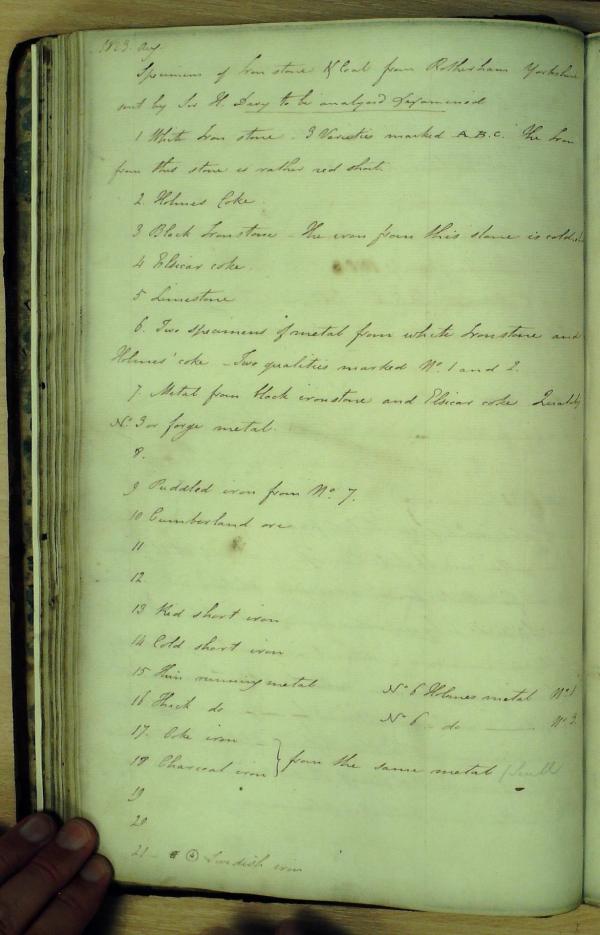 1823. Aug.
Specimens of Iron stone & Coal from Rotherham Yorkshire
sent by Sir H. Davy to be analysed & examined
1 White Iron stone - 3 Varieties marked A.B.C. The Iron
from this stone is rather red short.
2 Holmes Coke.
3 Black Ironstone - the iron from this stone is cold
4 Elsicar coke.
5 Limestone
6. Two specimens of metal from white Ironstone and
Holmes' coke - Two qualities marked No. 1 and 2.
7. Metal from black ironstone and Elsicar coke Quality
No. 3 or forge metal.
8.
9 Puddled iron from No. 7.
10 Cumberland ore
11
12
13 Red short iron
14 Cold short iron
15 Thin running metal No 6 Holmes metal No 1
16 Thick do - No 6 - do - No
17. Coke iron
18 Charcoal iron } from the same metal
19
20
21 - ④ Swedish iron